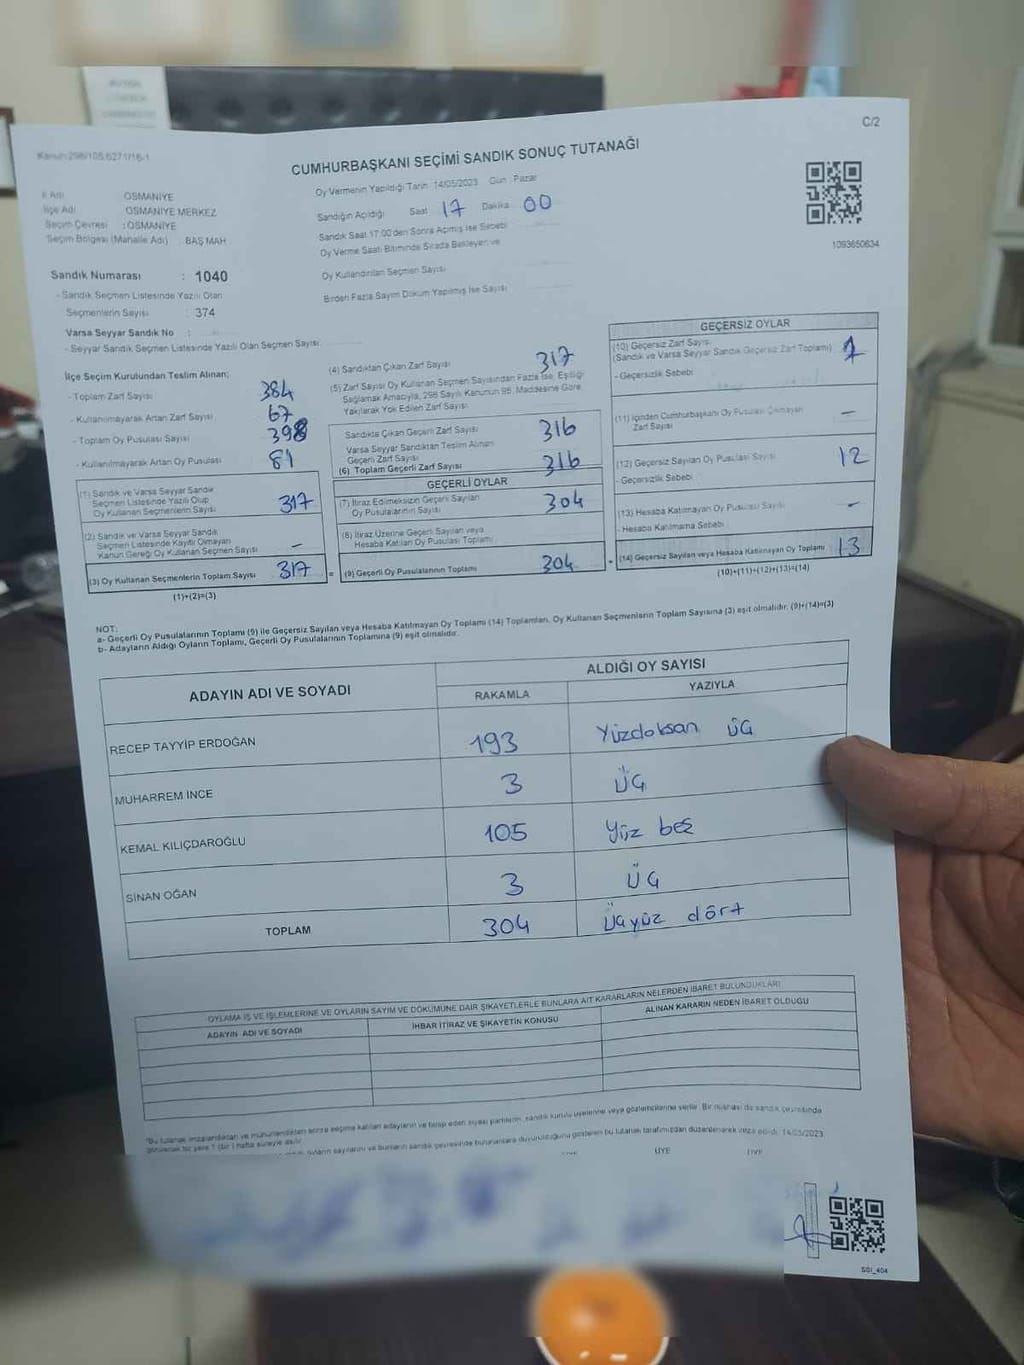 C/2
Kanun:298/105,6271/16-1
CUMHURBAŞKANI SEÇİMİ SANDIK SONUÇ TUTANAĞI
Oy Vermenin Yapıldığı Tarih 14/05/2023 Gün : Pazar
İl Adı OSMANİYE
İlçe Adı OSMANİYE MERKEZ
Seçim Çevresi : OSMANİYE
Seçim Bölgesi (Mahalle Adı) : BAŞ MAH
Sandığın Açıldığı Saat 17 Dakika 00
Sandık Saat 17:00'den Sonra Açılmış İse Sebebi
Oy Verme Saati Bitiminde Sırada Bekleyen ve
Oy Kullandırılan Seçmen Sayısı
Birden Fazla Sayım Döküm Yapılmış İse Sayısı
1093650634
Sandık Numarası : 1040
- Sandık Seçmen Listesinde Yazılı Olan
Seçmenlerin Sayısı : 374
Varsa Seyyar Sandık No :
- Seyyar Sandık Seçmen Listesinde Yazılı Olan Seçmen Sayısı:
İlçe Seçim Kurulundan Teslim Alınan;
- Toplam Zarf Sayısı 384
- Kullanılmayarak Artan Zarf Sayısı 67
- Toplam Oy Pusulası Sayısı 398
- Kullanılmayarak Artan Oy Pusulası 81
(1) Sandık ve Varsa Seyyar Sandık
Seçmen Listesinde Yazılı Olup
Oy Kullanan Seçmenlerin Sayısı 317
(2) Sandık ve Varsa Seyyar Sandık
Seçmen Listesinde Kayıtlı Olmayan
Kanun Gereği Oy Kullanan Seçmen Sayısı -
(3) Oy Kullanan Seçmenlerin Toplam Sayısı 317
(1)+(2)=(3)
(4) Sandıktan Çıkan Zarf Sayısı 317
(5) Zarf Sayısı Oy Kullanan Seçmen Sayısından Fazla İse, Eşitliği
Sağlamak Amacıyla, 298 Sayılı Kanunun 98. Maddesine Göre
Yakılarak Yok Edilen Zarf Sayısı
Sandıkta Çıkan Geçerli Zarf Sayısı 316
Varsa Seyyar Sandıktan Teslim Alınan
Geçerli Zarf Sayısı
(6) Toplam Geçerli Zarf Sayısı 316
GEÇERLİ OYLAR
(7) İtiraz Edilmeksizin Geçerli Sayılan
Oy Pusulalarının Sayısı 304
(8) İtiraz Üzerine Geçerli Sayılan veya
Hesaba Katılan Oy Pusulası Toplamı
= (9) Geçerli Oy Pusulalarının Toplamı 304
GEÇERSİZ OYLAR
(10) Geçersiz Zarf Sayısı
(Sandık ve Varsa Seyyar Sandık Geçersiz Zarf Toplamı) 1
- Geçersizlik Sebebi
(11) İçinden Cumhurbaşkanı Oy Pusulası Çıkmayan
Zarf Sayısı -
(12) Geçersiz Sayılan Oy Pusulası Sayısı 12
- Geçersizlik Sebebi
(13) Hesaba Katılmayan Oy Pusulası Sayısı -
- Hesaba Katılmama Sebebi
(14) Geçersiz Sayılan veya Hesaba Katılmayan Oy Toplamı 13
(10)+(11)+(12)+(13)=(14)
NOT:
a- Geçerli Oy Pusulalarının Toplamı (9) ile Geçersiz Sayılan veya Hesaba Katılmayan Oy Toplamı (14) Toplamları, Oy Kullanan Seçmenlerin Toplam Sayısına (3) eşit olmalıdır. (9)+(14)=(3)
b- Adayların Aldığı Oyların Toplamı, Geçerli Oy Pusulalarının Toplamına (9) eşit olmalıdır.
ADAYIN ADI VE SOYADI
ALDIĞI OY SAYISI
RAKAMLA
YAZIYLA
RECEP TAYYİP ERDOĞAN 193 Yüzdoksan üç
MUHARREM İNCE 3 üç
KEMAL KILIÇDAROĞLU 105 Yüz beş
SİNAN OĞAN 3 üç
TOPLAM 304 Üçyüz dört
OYLAMA İŞ VE İŞLEMLERİNE VE OYLARIN SAYIM VE DÖKÜMÜNE DAİR ŞİKAYETLERLE BUNLARA AİT KARARLARIN NELERDEN İBARET BULUNDUKLARI
ADAYIN ADI VE SOYADI
İHBAR İTİRAZ VE ŞİKAYETİN KONUSU
ALINAN KARARIN NEDEN İBARET OLDUĞU
"Bu tutanak imzalandıktan ve mühürlendikten sonra seçime katılan adayların ve talep eden siyasi partilerin, sandık kurulu üyelerine veya gözlemcilerine verilir. Bir nüshası da sandık çevresinde
görülecek bir yere 1 (bir ) hafta süreyle asılır.
oyların sayılarını ve bunların sandık çevresinde bulunanlara duyurulduğunu gösteren bu tutanak tarafımızdan düzenlenerek imza edildi. 14/05/2023
ÜYE ÜYE ÜYE
SSI_404